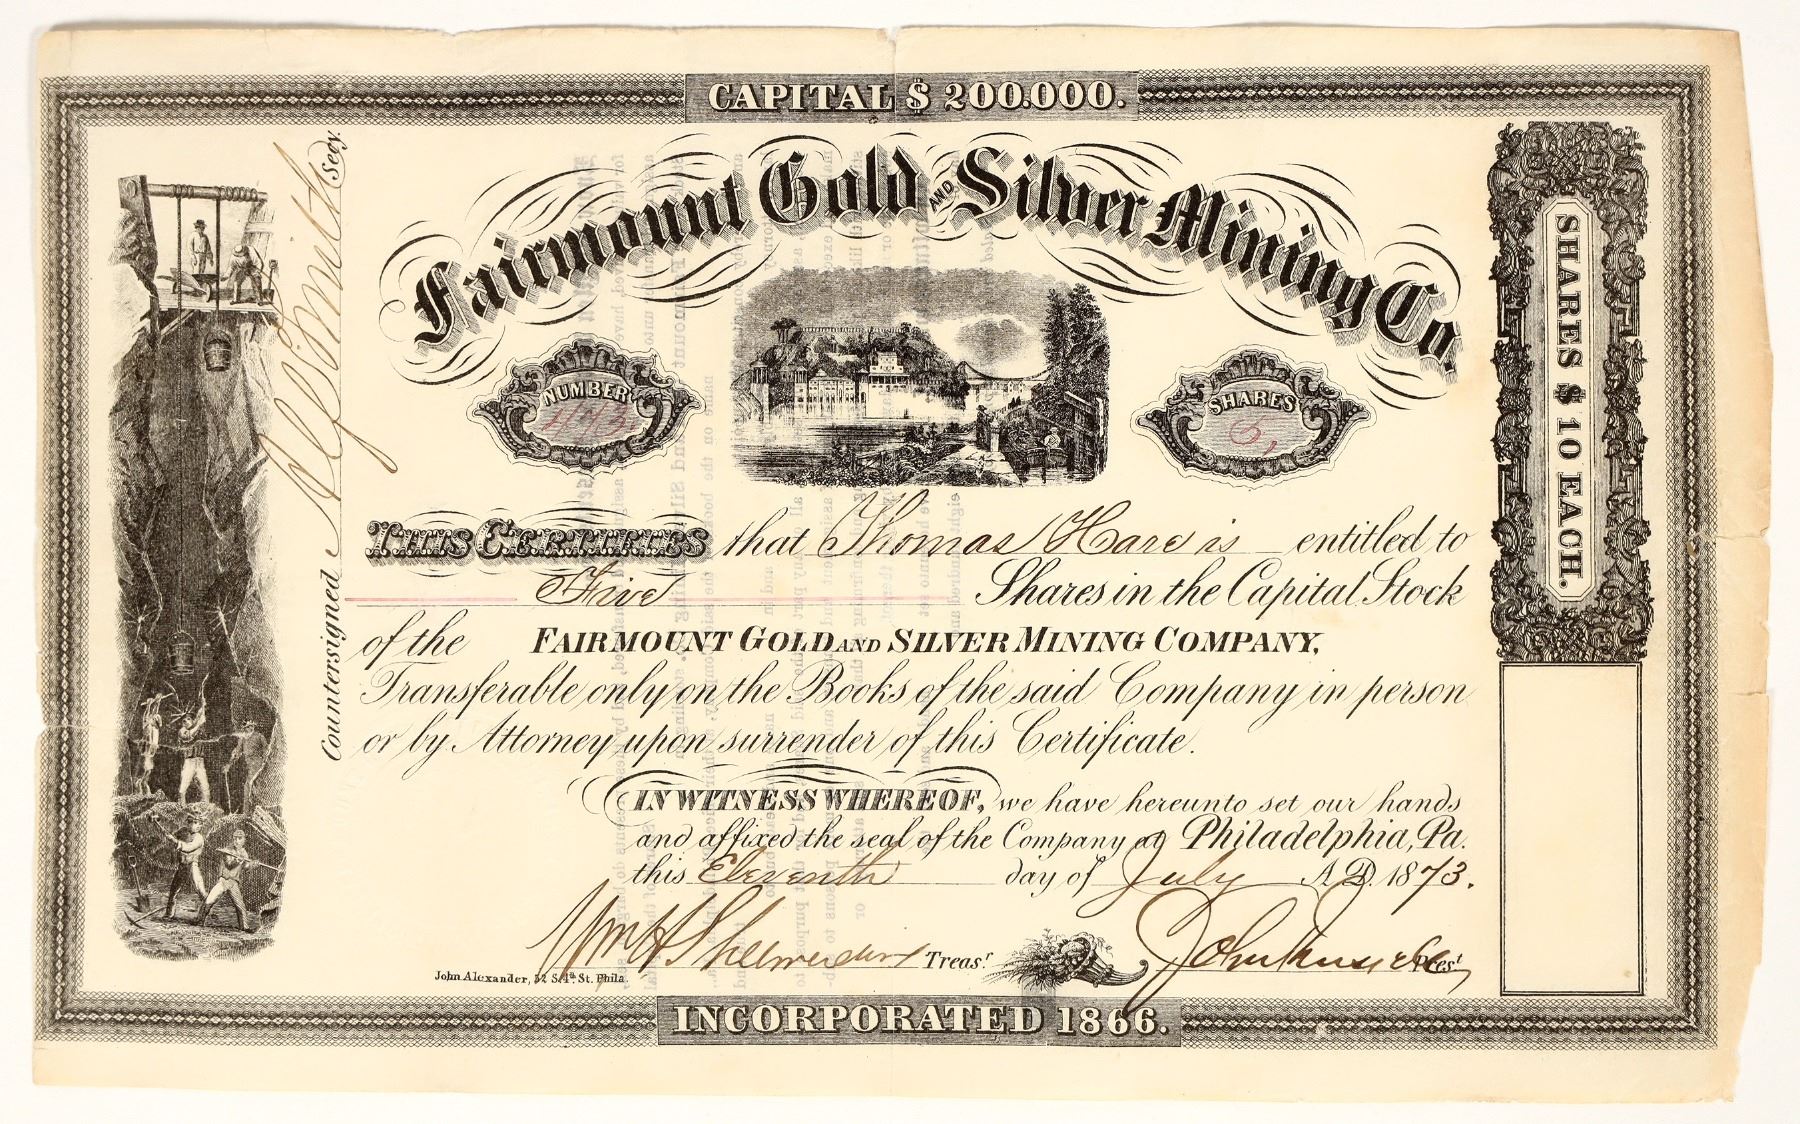 CAPITAL $ 200.000.
Fairmount Gold AND Silver Mining Co.
NUMBER
473,
SHARES
5,
SHARES $ 10 EACH.
Countersigned Alf Smith Secy.
THIS CERTIFIES that Thomas Hare is entitled to
Five Shares in the Capital Stock
of the FAIRMOUNT GOLD AND SILVER MINING COMPANY,
Transferable only on the Books of the said Company in person
or by Attorney upon surrender of this Certificate.
IN WITNESS WHEREOF, we have hereunto set our hands
and affixed the seal of the Company at Philadelphia, Pa.
this Eleventh day of July A.D. 1873.
Wm H Treas.r
John Prest
John Alexander, 52 S. 4th St. Phila.
INCORPORATED 1866.